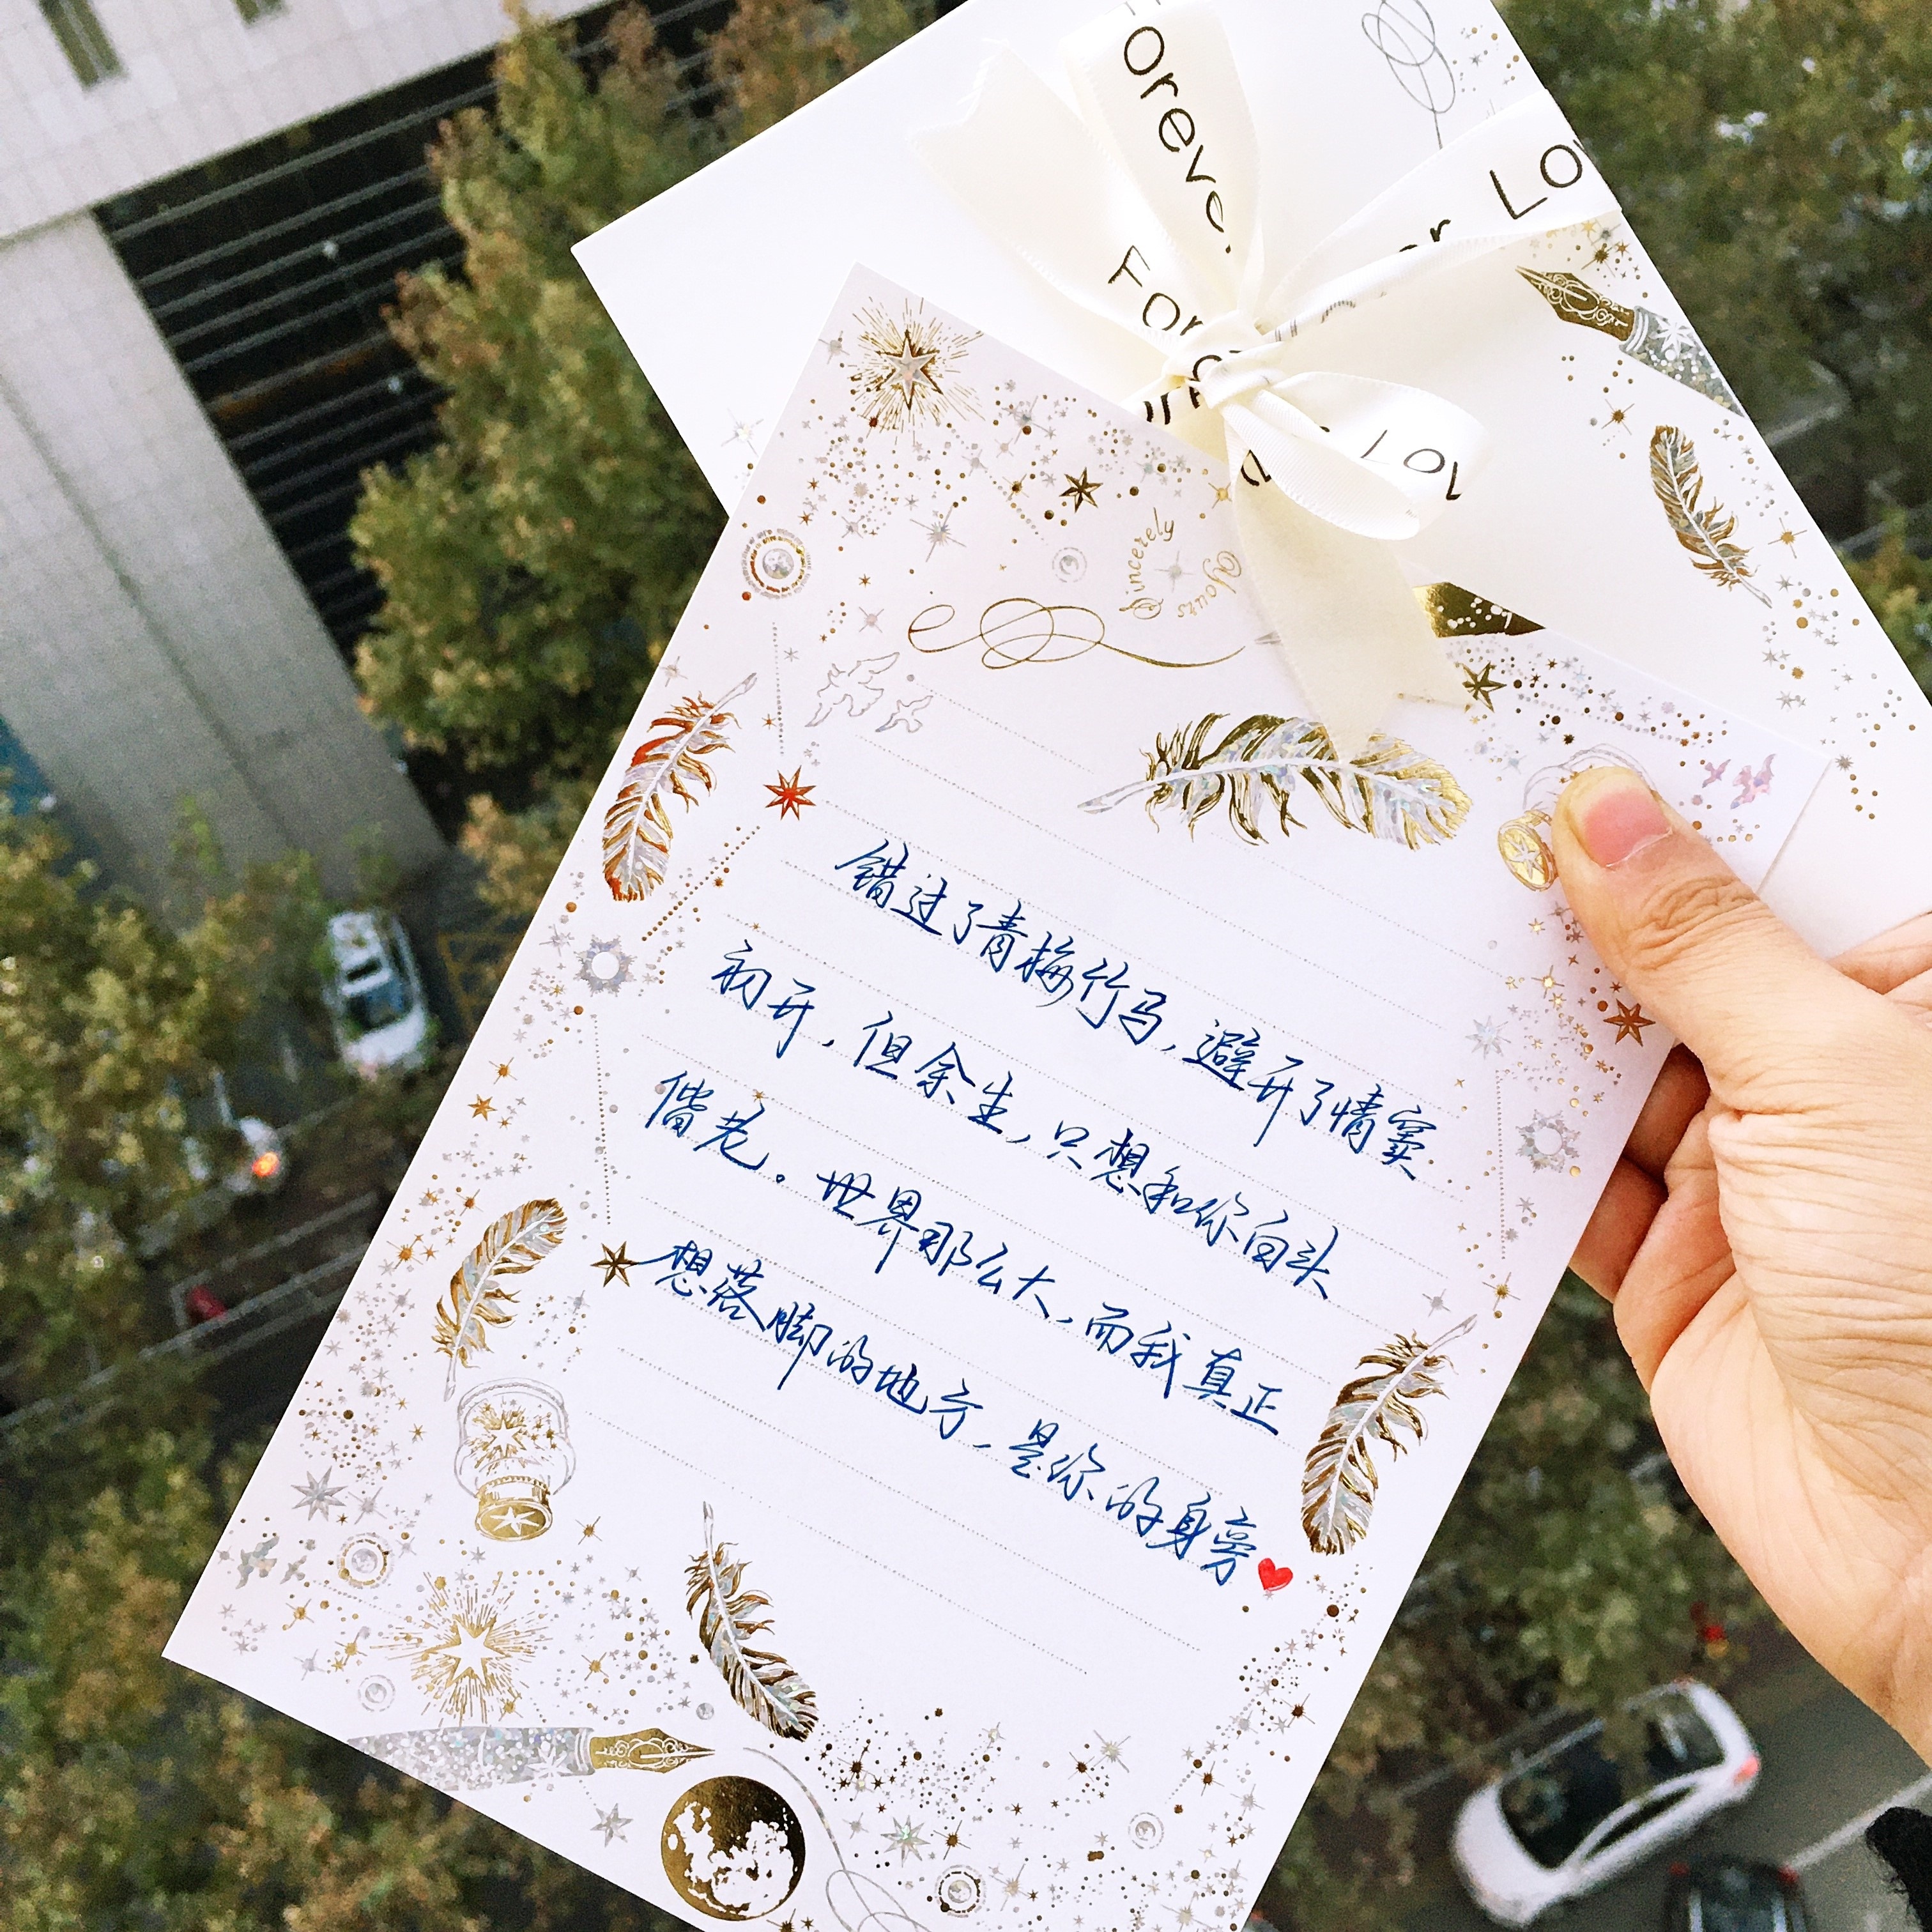 Forever
For
er Lov
Lov
Sincerely
Yours
错过了青梅竹马,避开了情窦
初开,但余生,只想和你白头
偕老。世界那么大,而我真正
想落脚的地方,是你的身旁